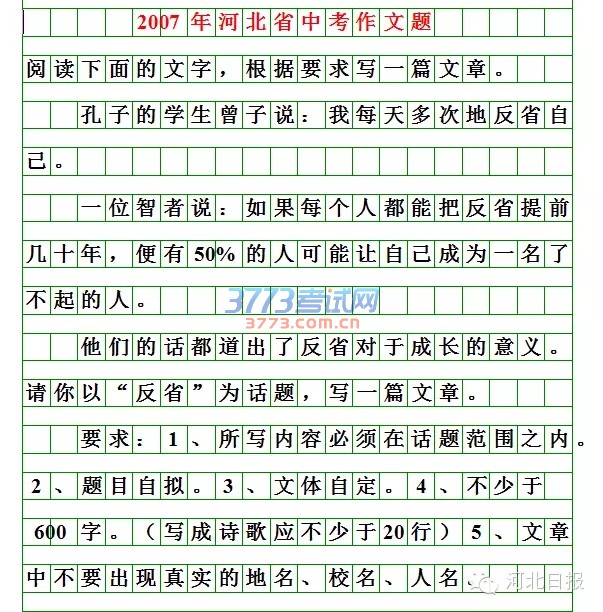 2007年河北省中考作文题
阅读下面的文字，根据要求写一篇文章。
孔子的学生曾子说：我每天多次地反省自
己。
一位智者说：如果每个人都能把反省提前
几十年，便有50%的人可能让自己成为一名了
不起的人。
3773考试网
3773.com.cn
他们的话都道出了反省对于成长的意义。
请你以“反省”为话题，写一篇文章。
要求：1、所写内容必须在话题范围之内。
2、题目自拟。3、文体自定。4、不少于
600字。（写成诗歌应不少于20行）5、文章
中不要出现真实的地名、校名、人名、
河北日报